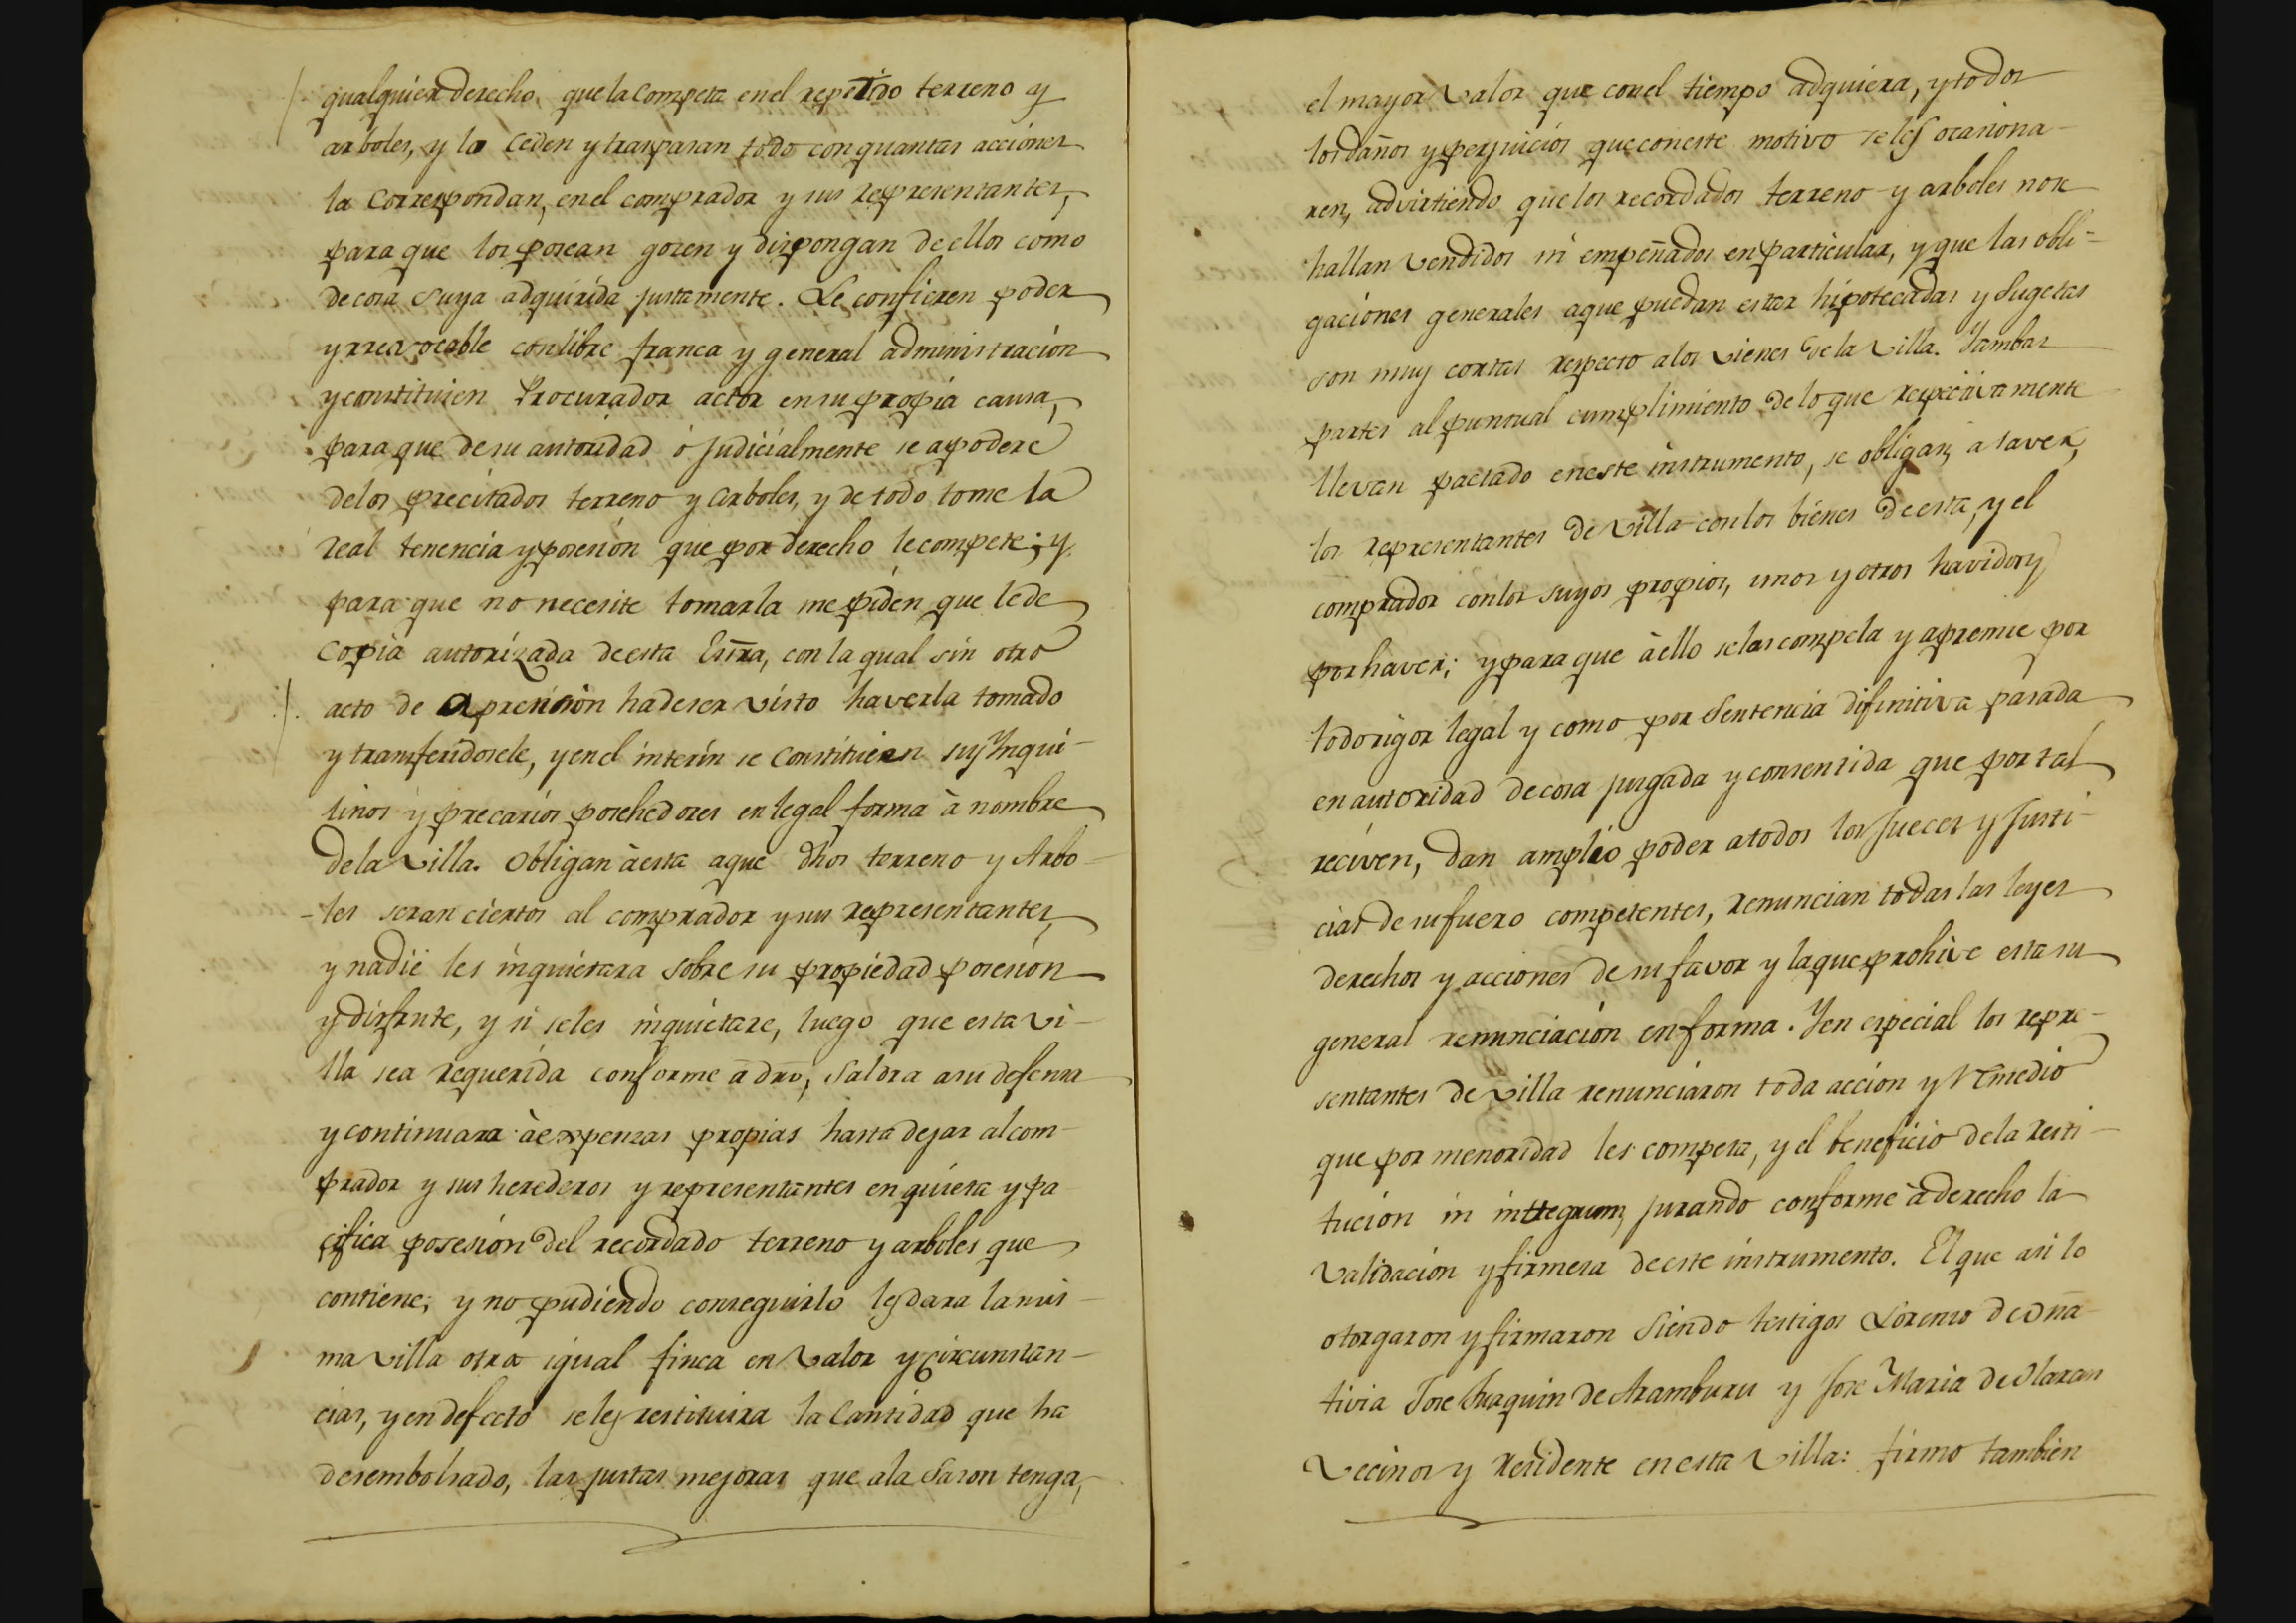 qualquier derecho que la competa en el repetido terreno y
arboles, y lo ceden y traspasan todo con quantas acciones
la correspondan, en el comprador y sus representantes,
para que los posean gosen y dispongan de ellos como
de cosa suya adquirida justamente. Le confieren poder
yrrevocable con libre franca y general administración
y constituien Procurador actor en su propia causa,
para que de su autoridad ó Judicialmente se apodere
de los precitados terreno y arboles, y de todo tome la
real tenencia y posesión que por derecho le compete; y
para que no necesite tomarla me piden que le de
copia autorizada de esta Esrra, con la qual sin otro
acto de aprension ha de ser visto haverla tomado
y transferidosele, y en el interín se constituien sus Inqui-
linos y precarios posehedores en legal forma à nombre
de la Villa. Obligan à esta a que dhos terreno y Arbo-
-les seran ciertos al comprador y sus representantes,
y nadie les inquietara sobre su propiedad posesión
y disfrute, y si se les inquietare, luego que esta vi-
lla sea requerida conforme a dro, Saldra a su defensa
y continuara à expensas propias hasta dejar al com-
prador y sus herederos y representantes en quieta y pa
cifica posesión del recordado terreno y arboles que
contiene; y no pudiendo conseguirlo les dara la mis-
ma Villa otra igual finca en Valor y circunstan-
cias, y en defecto se les restituira la Cantidad que ha
desembolsado, las justas mejoras que a la Sason tenga,
el mayor Valor que con el tiempo adquiera, y todos
los daños y perjuicios que con este motivo se les ocasiona-
ren, advirtiendo que los recordados terreno y arboles no se
hallan vendidos ni empeñados en particular, y que las obli-
gaciónes generales a que puedan estar hipotecadas y Sugetas
son muy cortas respecto a los vienes de la Villa. Y ambas
partes al puntual cumplimiento de lo que respectivamente
llevan pactado en este instrumento, se obligan, a saver,
los representantes de Villa con los bienes de esta, y el
comprador con los suyos propios, unos y otros havidos y
por haver; y para que à ello se las compela y apremie por
todo rigor legal y como por Sentencia difinitiva pasada
en autoridad de cosa jusgada y consentida que por tal
reciven, dan amplio poder a todos los Jueces y Justi-
cias de su fuero competentes, renuncian todas las leyes
derechos y acciones de su favor y la que prohive esta su
general renunciación en forma. Y en especial los repre-
sentantes de Villa renunciaron toda acción y remedio
que por menoridad les competa, y el beneficio de la resti-
tución in inttegrum, jurando conforme à derecho la
validación y firmesa de este instrumento. El que asi lo
otorgaron y firmaron Siendo testigos Lorenso de Oña-
tivia Jose Juaquin de Aramburu y Jose Maria de Olaran
Vecinos y Residente en esta Villa: firmo tambien